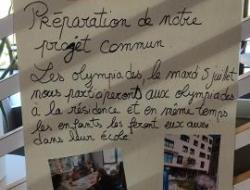 Préparation de notre
projet commun
Les olympiades, le mardi 5 juillet
nous participerons aux olympiades
à la résidence et en même temps
les enfants les feront eux aussi
dans leur école